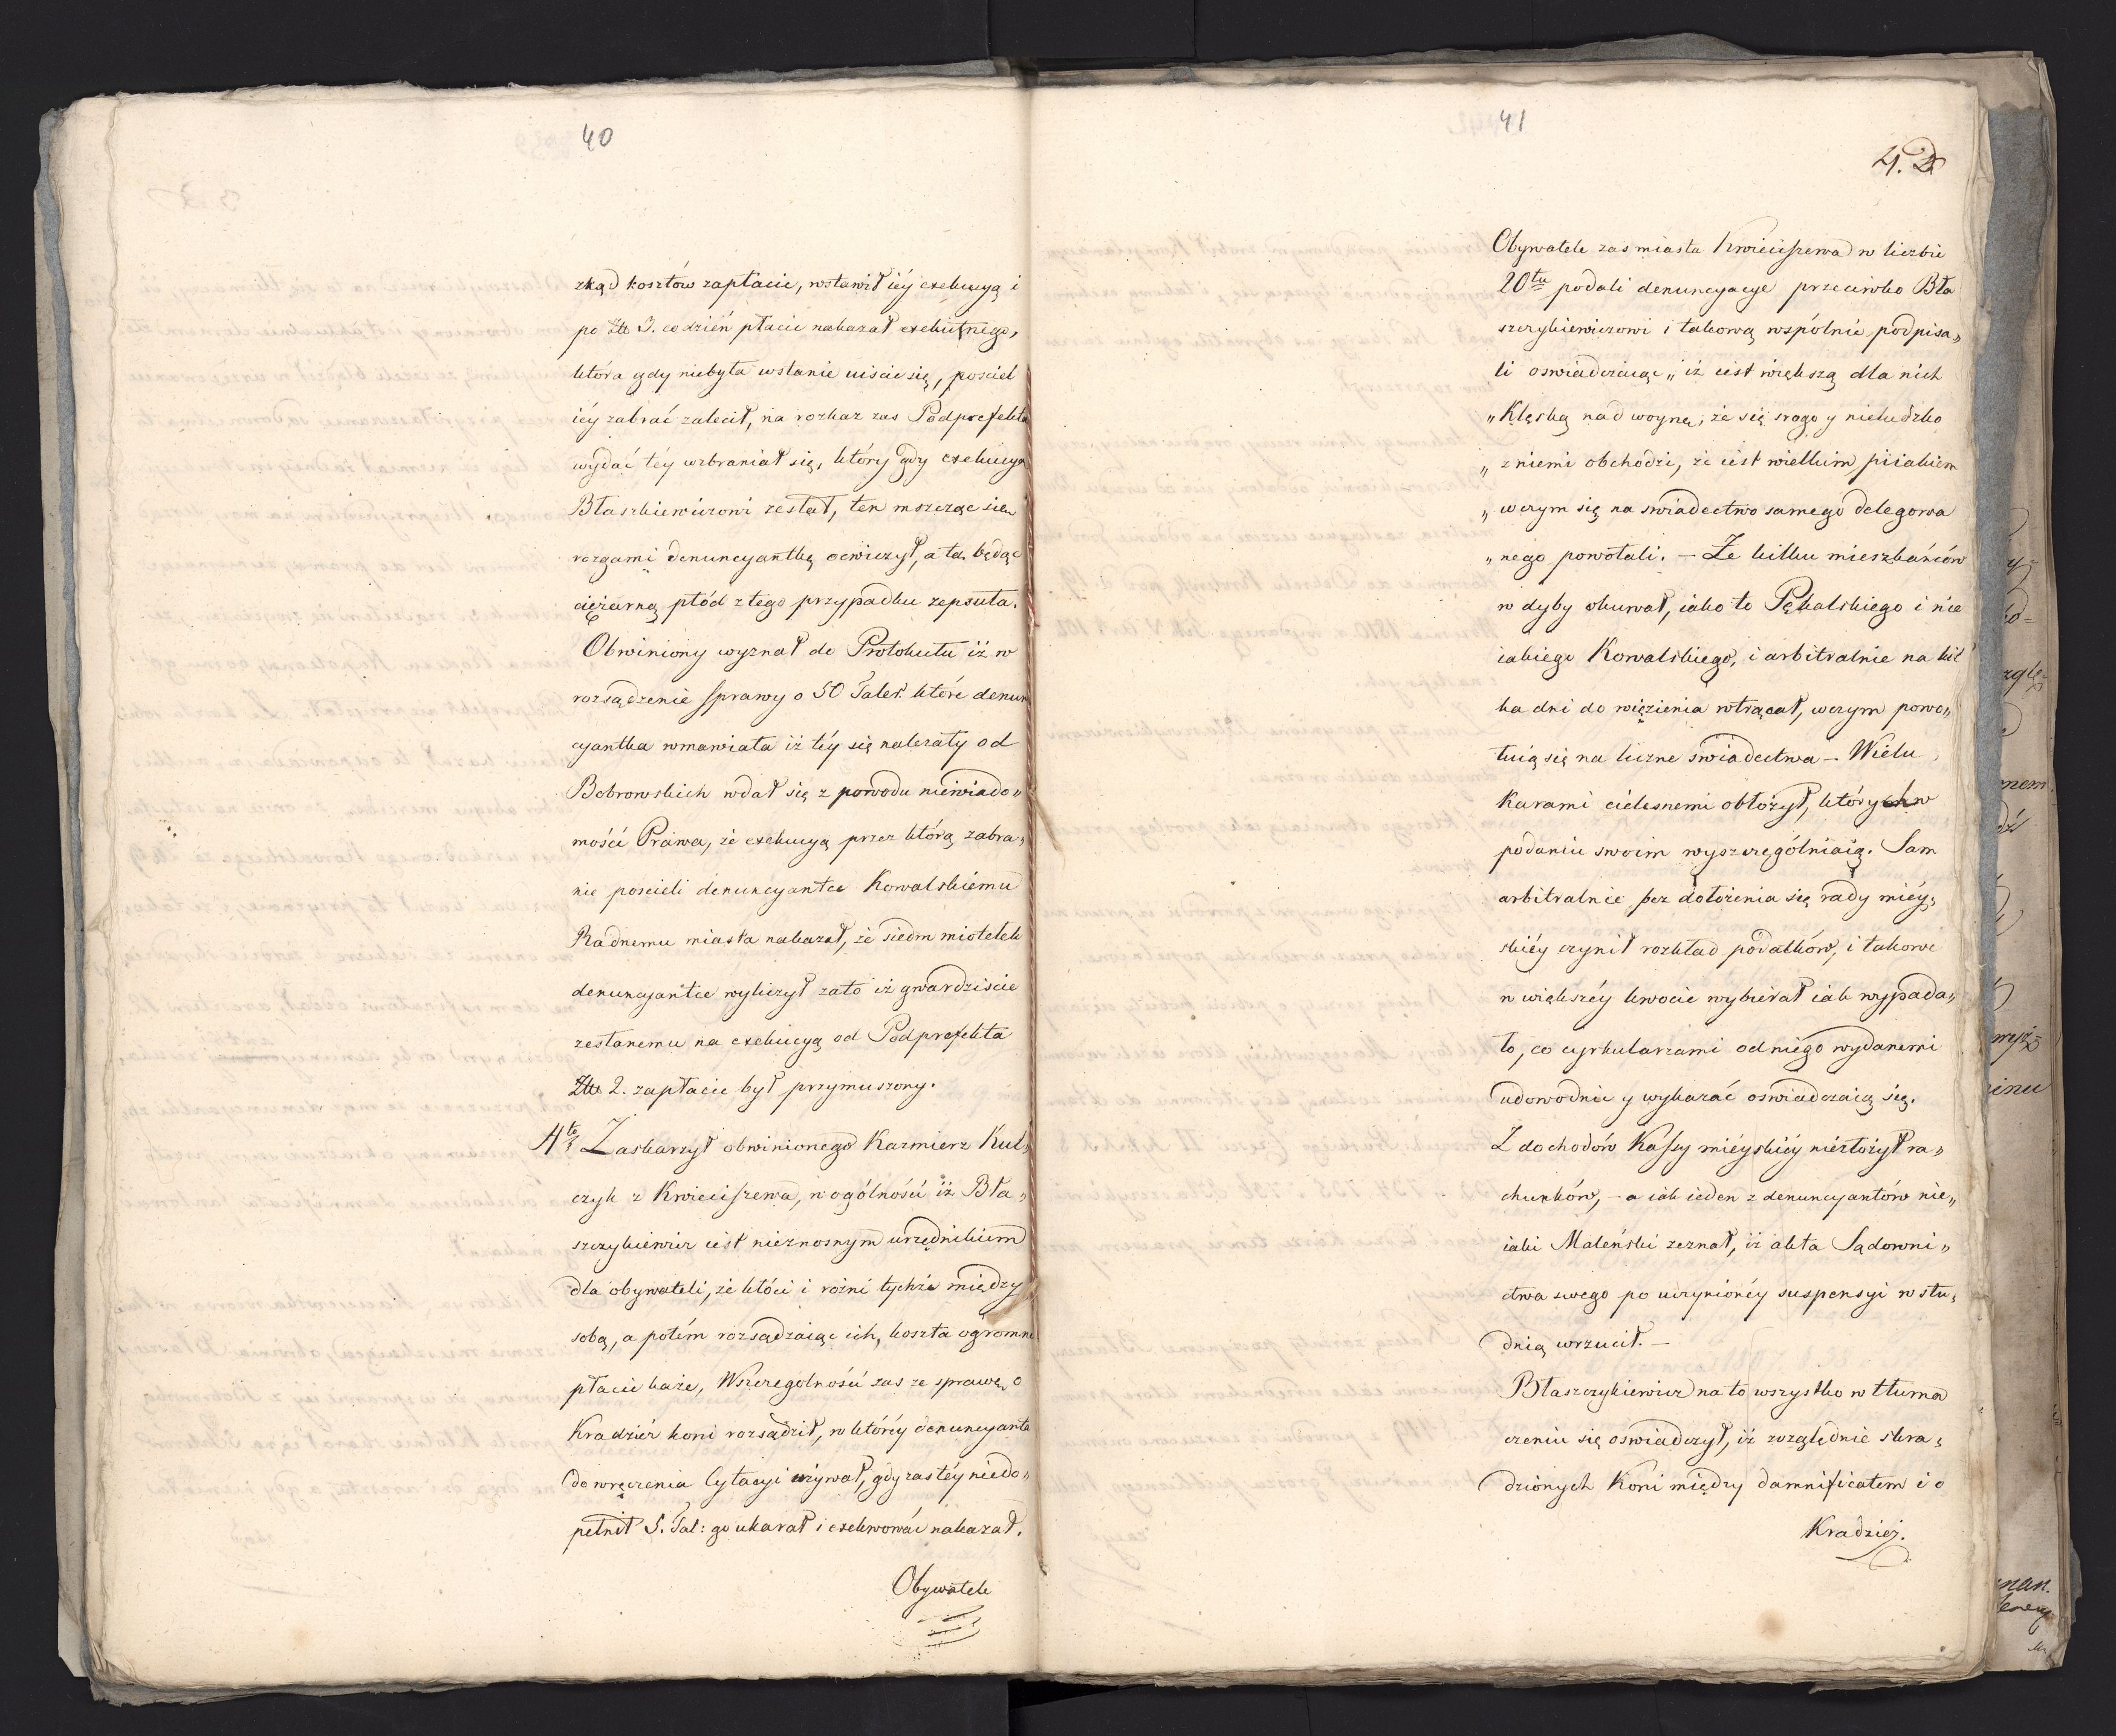 40
zkąd kosztów zapłacić, wstawił iéy exekucyą i
po Złł 3. codzień płacić nakazał exekutnego,
która gdy niebyła wstanie uiścić się, pościel
iéy zabrać zalecił, na rozkaz zas Podprefekta
wydać téy wzbraniał się, który gdy exekucyą
Błaszkiewiczowi zesłał, ten mszcząc się
rozgami denuncyantkę oćwiczył, a ta będąc
ciężarną płód z tego przypadku zepsuła.
Obwiniony wyznał do Protokułu iż w
rozsądzenie sprawy o 50 Taler. które denun
cyantka wmawiała iż téy się należały od
Bobrowskich wdał się z powodu niewiado„
mości Prawa, że exekucyą przez którą zabra„
nie poscieli denuncyantce Kowalskiemu
Radnemu miasta nakazał, że siedm miotełek
denuncyantce wyliczył zato iż gwardziscie
zesłanemu na exekucyą od Podprefekta
Złł 2. zapłacić był przymuszony.
4to Zaskarzył obwinionego Kazmierz Kul„
czyk z Kwieciszewa, w ogólności iż Bła„
szczykiewicz iest nieznosnym urzędnikiem
dla obywateli, że kłóci i rożni tychże między
sobą, a potém rozsądzaiąc ich, koszta ogromne
płacić każe, Wszczegolności zas ze sprawę o
Kradzież koni rozsądził, w któréy denuncyanta
do wręczenia Cytacyi używał, gdy zas téy niedo„
pełnił 5. Tal: go ukarał i exekwować nakazał.
Obywatele
41
4. D
Obywatele zas miasta Kwieciszewa w liczbie
20tu podali denuncyacye przeciwko Bła
szczykiewiczowi i takową wspólnie podpisa„
li oswiadczaiąc „iż iest większą dla nich
„Klęską nad woynę, że się srogo y nieludzko
„z niemi obchodzi, że iest wielkim piiakiem
„wczym się na swiadectwo samego delegowa
„nego powołali. — Że kilku mieszkańców
w dyby okuwał, iako to Pękalskiego i nie
iakiego Kowalskiego, i arbitralnie na kil
ka dni do więzienia wtrącał, wczym powo„
łuią się na liczne świadectwa — Wielu
Karami cielesnemi obłożył, których w
podaniu swoim wyszczególniaią. Sam
arbitralnie bez dołożenia się rady miéy„
skiéy czynił rozkład podatków, i takowe
w większéy kwocie wybierał iak wypada„
ło, co cyrkularzami od niego wydanemi
udowodnić y wykazać oswiadczaią się.
Z dochodów Kassy miéyskiéy niezłożył ra„
chunków, — a iak ieden z denuncyantów nie„
iaki Maleński zeznał, iż akta Sądowni„
ctwa swego po uczynionéy suspensyi w stu„
dnią wrzucił. —
Błaszczykiewicz na to wszystko w tłuma
czeniu się oswiadczył, iż względnie skra„
dzionych Koni między damnificatem i o
Kradzież.